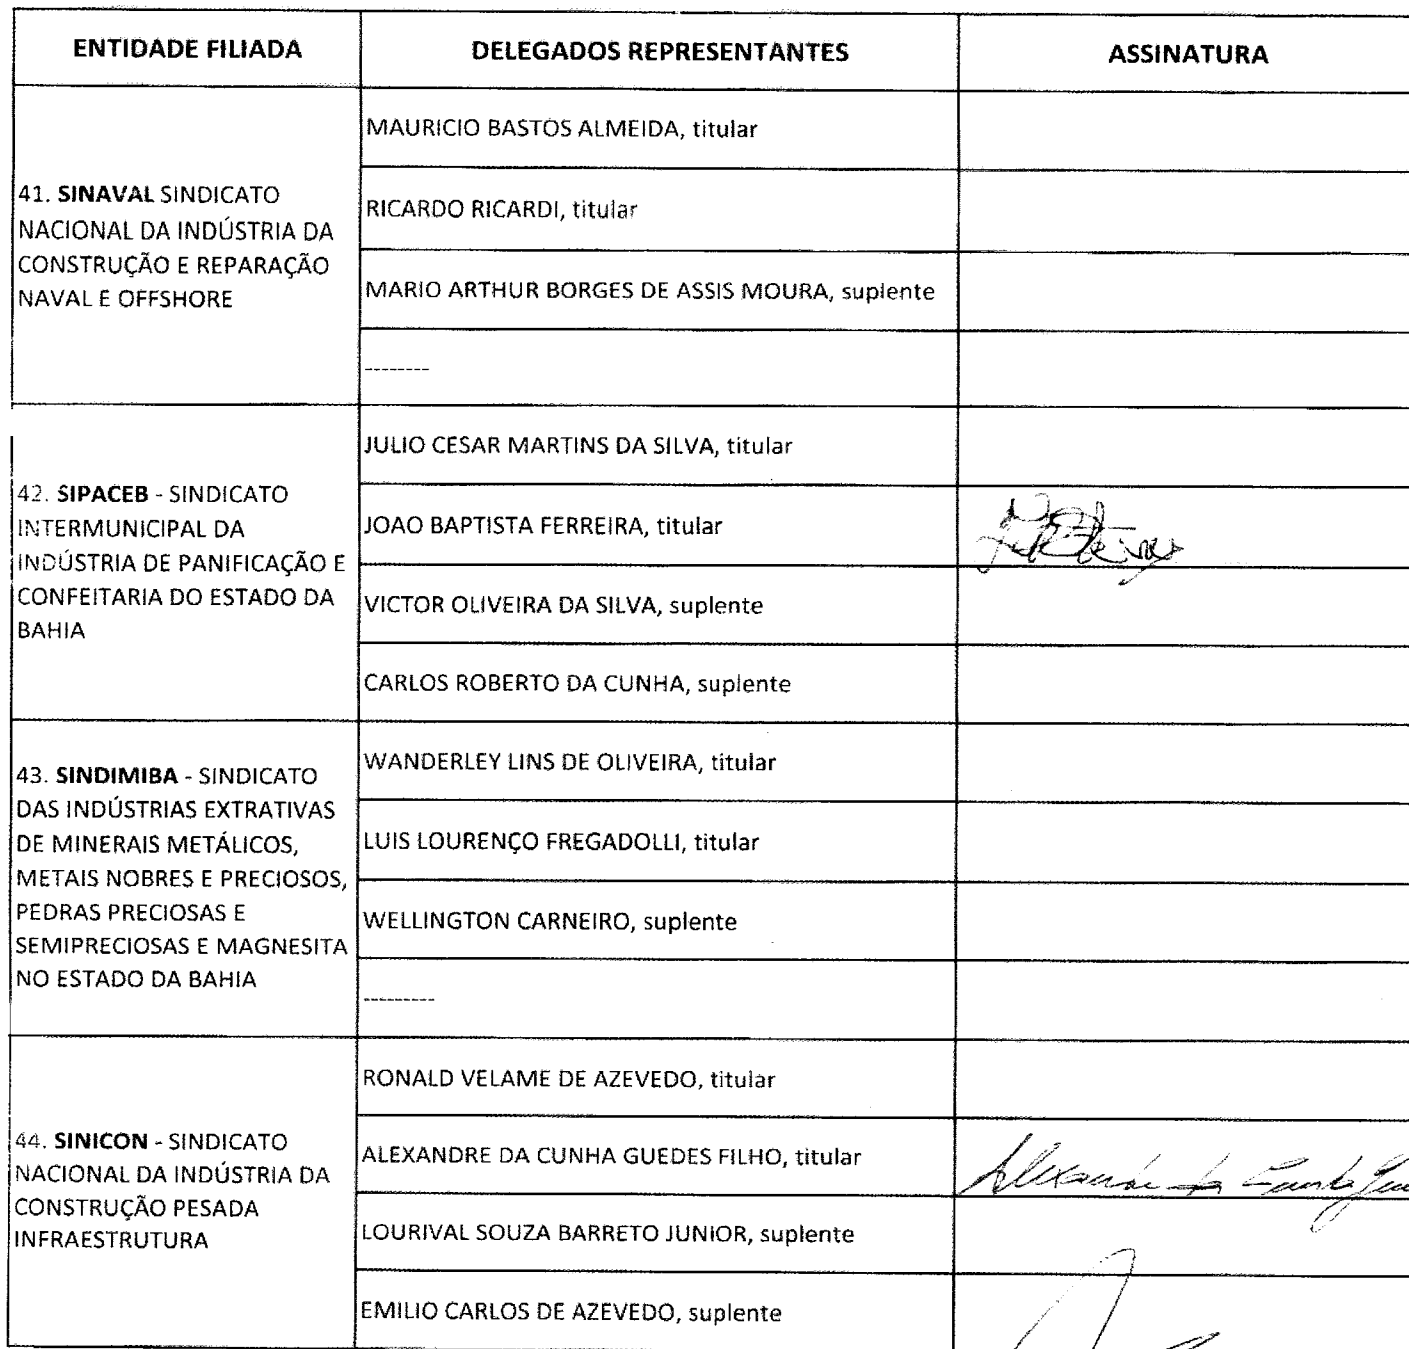 ENTIDADE FILIADA
DELEGADOS REPRESENTANTES
ASSINATURA
41. SINAVAL SINDICATO
NACIONAL DA INDÚSTRIA DA
CONSTRUÇÃO E REPARAÇÃO
NAVAL E OFFSHORE
MAURICIO BASTOS ALMEIDA, titular
RICARDO RICARDI, titular
MARIO ARTHUR BORGES DE ASSIS MOURA, suplente
--------
42. SIPACEB - SINDICATO
INTERMUNICIPAL DA
INDÚSTRIA DE PANIFICAÇÃO E
CONFEITARIA DO ESTADO DA
BAHIA
JULIO CESAR MARTINS DA SILVA, titular
JOAO BAPTISTA FERREIRA, titular
VICTOR OLIVEIRA DA SILVA, suplente
CARLOS ROBERTO DA CUNHA, suplente
43. SINDIMIBA - SINDICATO
DAS INDÚSTRIAS EXTRATIVAS
DE MINERAIS METÁLICOS,
METAIS NOBRES E PRECIOSOS,
PEDRAS PRECIOSAS E
SEMIPRECIOSAS E MAGNESITA
NO ESTADO DA BAHIA
WANDERLEY LINS DE OLIVEIRA, titular
LUIS LOURENÇO FREGADOLLI, titular
WELLINGTON CARNEIRO, suplente
---------
44. SINICON - SINDICATO
NACIONAL DA INDÚSTRIA DA
CONSTRUÇÃO PESADA
INFRAESTRUTURA
RONALD VELAME DE AZEVEDO, titular
ALEXANDRE DA CUNHA GUEDES FILHO, titular
Alexandre da Cunha
LOURIVAL SOUZA BARRETO JUNIOR, suplente
EMILIO CARLOS DE AZEVEDO, suplente